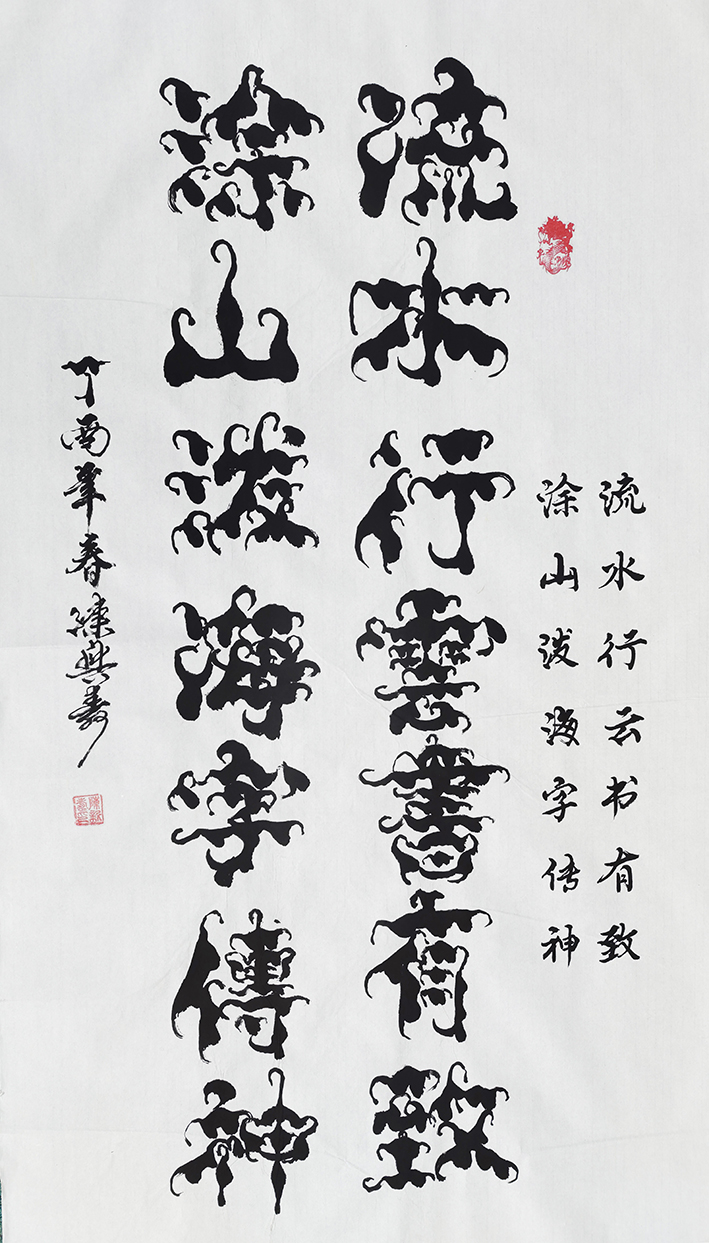 流水行云书有致
涂山泼海字传神
流水行雲書有致
涂山泼海字傳神
丁酉年春